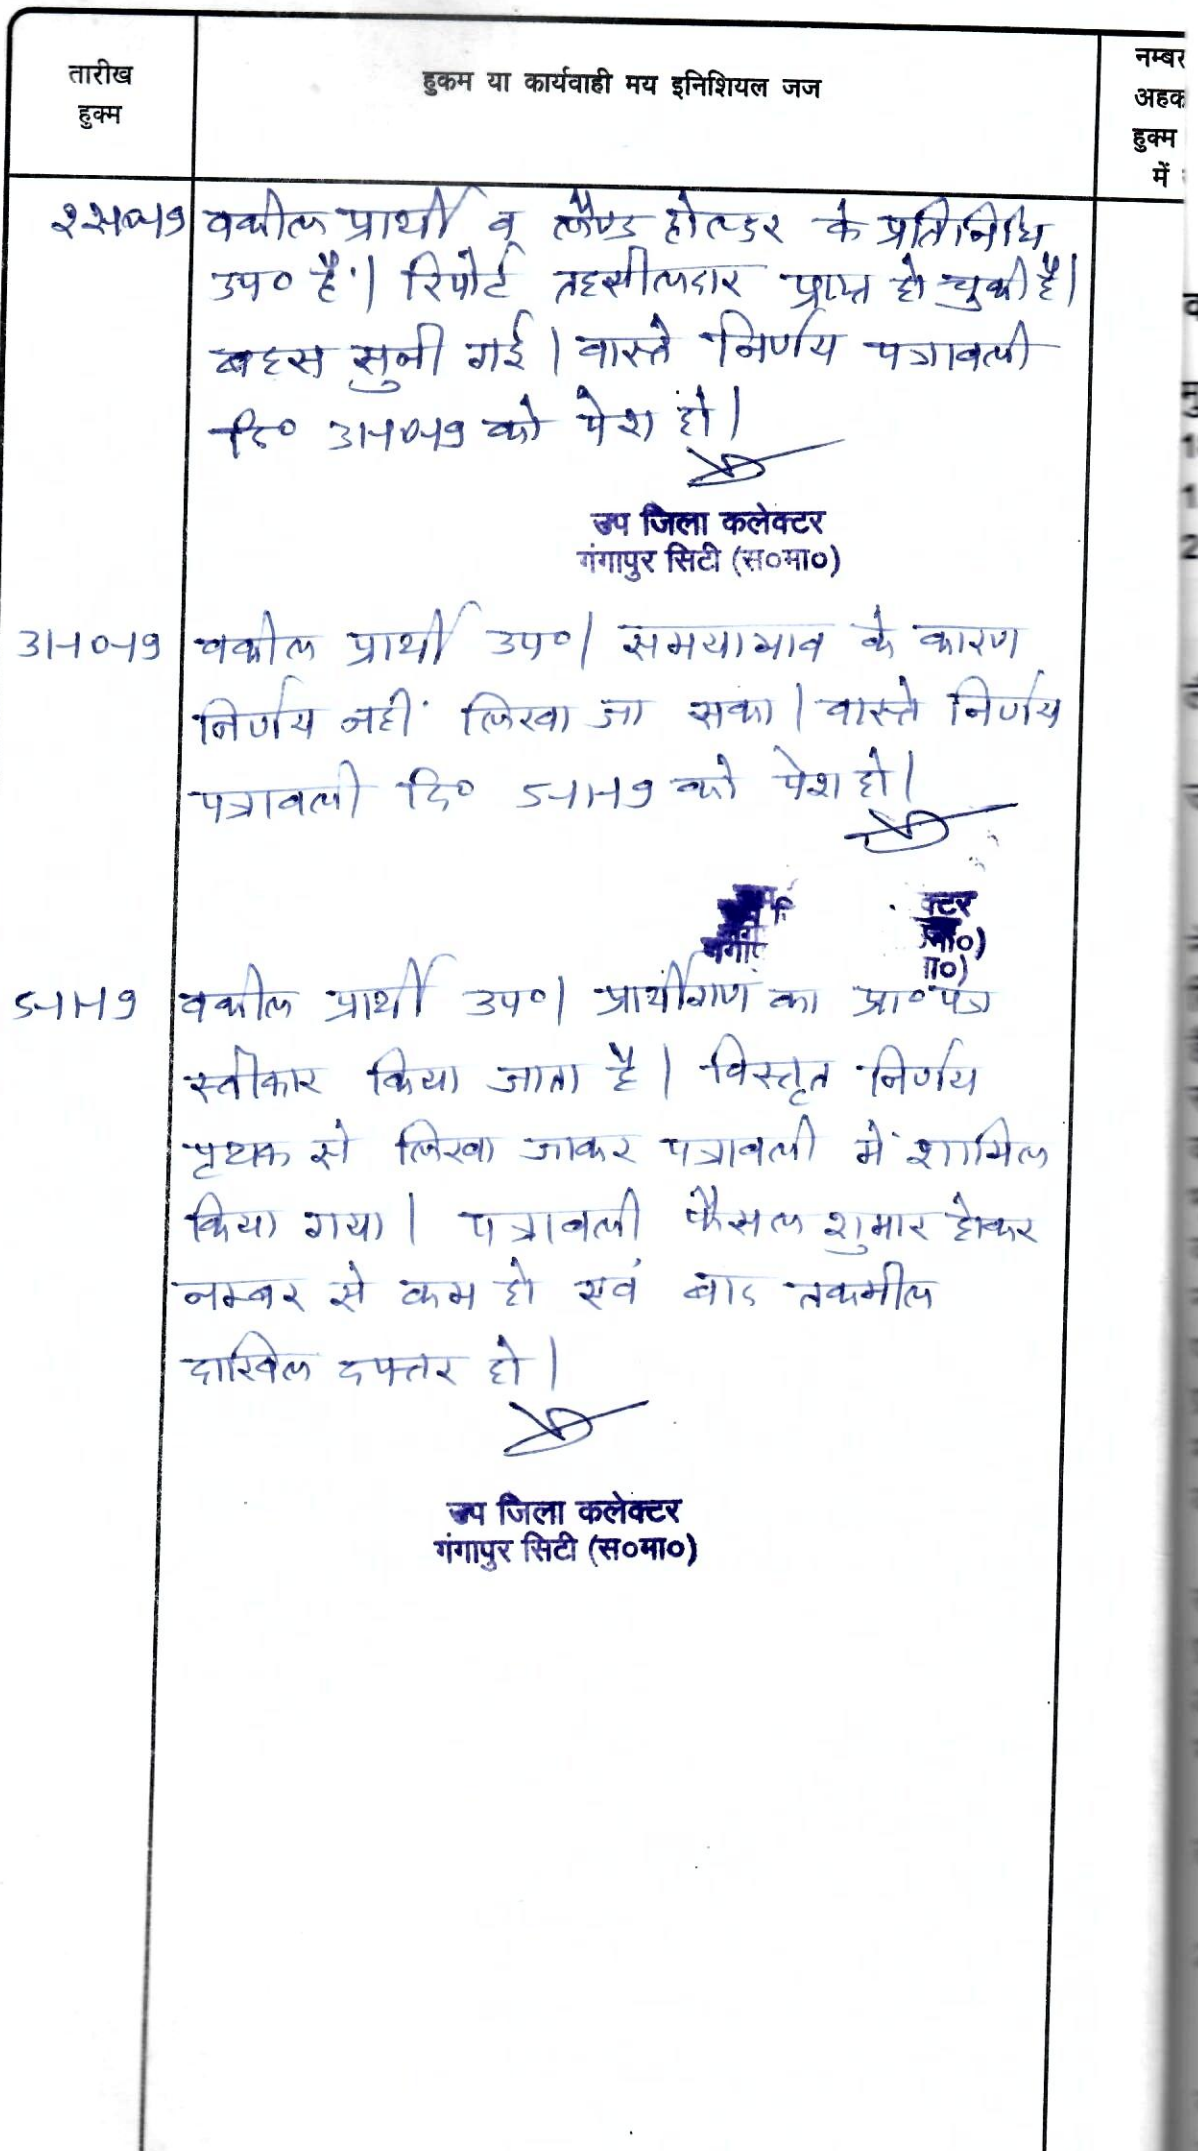 तारीख
हुक्म
हुकम या कार्यवाही मय इनिशियल जज
नम्बर
अहक
हुक्म
में
वकील प्रार्थी व लैण्ड होल्डर के प्रतिनिधि
उप० हैं। रिपोर्ट तहसीलदार प्राप्त हो चुकी है।
बहस सुनी गई। वास्ते निर्णय पत्रावली
दि० 31-10-19 को पेश हो।
उप जिला कलेक्टर
गंगापुर सिटी (स०मा०)
31-10-19 वकील प्रार्थी उप०। समयाभाव के कारण
निर्णय नहीं लिखा जा सका। वास्ते निर्णय
पत्रावली दि० 5-11-19 को पेश हो।
क्टर
5-11-19 वकील प्रार्थी उप०। प्रार्थीगण का प्रा० पत्र
स्वीकार किया जाता है। विस्तृत निर्णय
पृथक से लिखा जाकर पत्रावली में शामिल
किया गया। पत्रावली फैसल शुमार होकर
नम्बर से कम हो एवं बाद तकमील
दाखिल दफ्तर हो।
उप जिला कलेक्टर
गंगापुर सिटी (स०मा०)